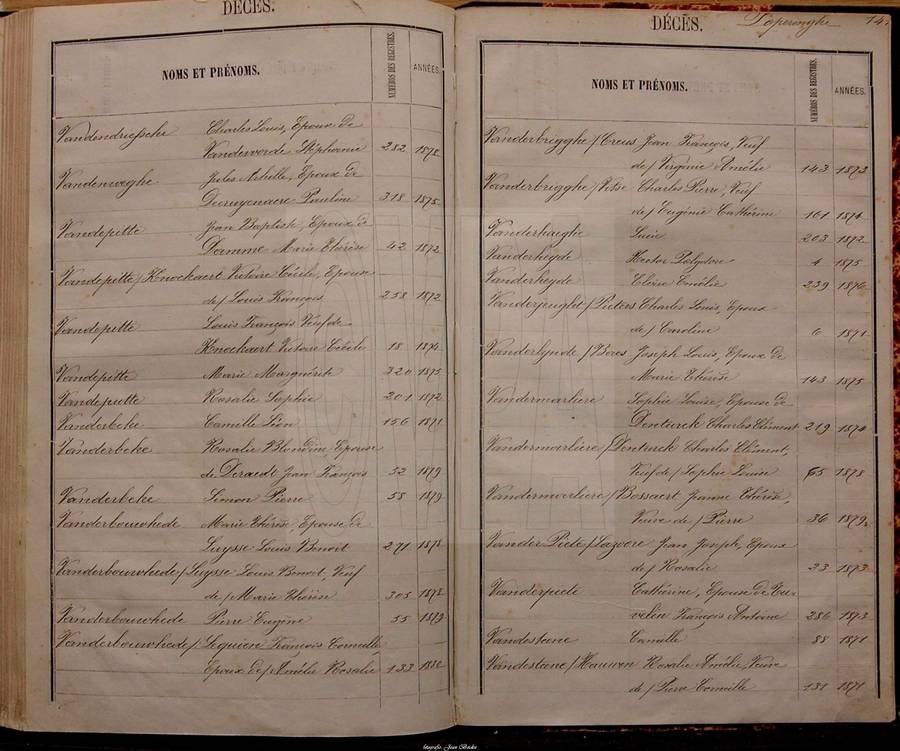 DÉCÈS.
NOMS ET PRÉNOMS.
NUMÉROS DES REGISTRES.
ANNÉES.
Vandendriessche Charles Louis, Epoux de
Vandevoorde Stéphanie 282 1878
Vandenweghe Jules Achille, Epoux de
Deruyenaere Pauline 318 1875
Vandepitte Jean Baptiste, Epoux de
Damme Marie Thérèse 42 1872
Vandepitte / Knockaert Victoire Cécile, Epouse
de / Louis François 258 1872
Vandepitte Louis François Veuf de
Knockaert Victoire Cécile 18 1874
Vandepitte Marie Marguérite 320 1875
Vandeputte Rosalie Sophie 201 1872
Vanderbeke Camille Léon 156 1871
Vanderbeke Rosalie Blondine, Epouse
de Deraedt Jean François 52 1879
Vanderbeke Simon Pierre 58 1879
Vanderbouwhede Marie Thérèse, Epouse de
Luysse Louis Benoit 271 1878
Vanderbouwhede / Luysse Louis Benoit, Veuf
de / Marie Thérèse 305 1878
Vanderbouwhede Pierre Eugène 55 1879
Vanderbouwhede / Lequiene François Corneille
Epoux de / Amélie Rosalie 133 1880
DÉCÈS.
Poperinghe
NOMS ET PRÉNOMS.
NUMÉROS DES REGISTRES.
ANNÉES.
Vanderbrigghe / Creus Jean François, Veuf
de / Virginie Amélie 143 1873
Vanderbrugghe / Charles Pierre, Veuf
de / Eugénie Cathérine 161 1874
Vanderhaeghe Lucie 203 1872
Vanderheyde Hector Polydore 4 1875
Vanderheyde Eloïse Emélie 239 1876
Vanderjeught / Pieters Charles Louis, Epoux
de / Caroline 6 1871
Vanderlynde / Boes Joseph Louis, Epoux de
Marie Thérèse 143 1875
Vandermarliere Sophie Louise, Epouse de
Denturck Charles Clément 219 1874
Vandermarliere / Denturck Charles Clément,
Veuf de / Sophie Louise 65 1878
Vandermarliere / Bossaert Jeanne Thérèse,
Veuve de / Pierre 36 1879
Vander Piete / Lazoere Jean Joseph, Epoux
de / Rosalie 23 1873
Vanderpiete Cathérine, Epouse de
François Antoine 286 1873
Vandestaene Camille 88 1871
Vandestaene / Hauwen Rosalie Amélie, Veuve
de / Pierre Corneille 131 1871
fotografie Jean Backe